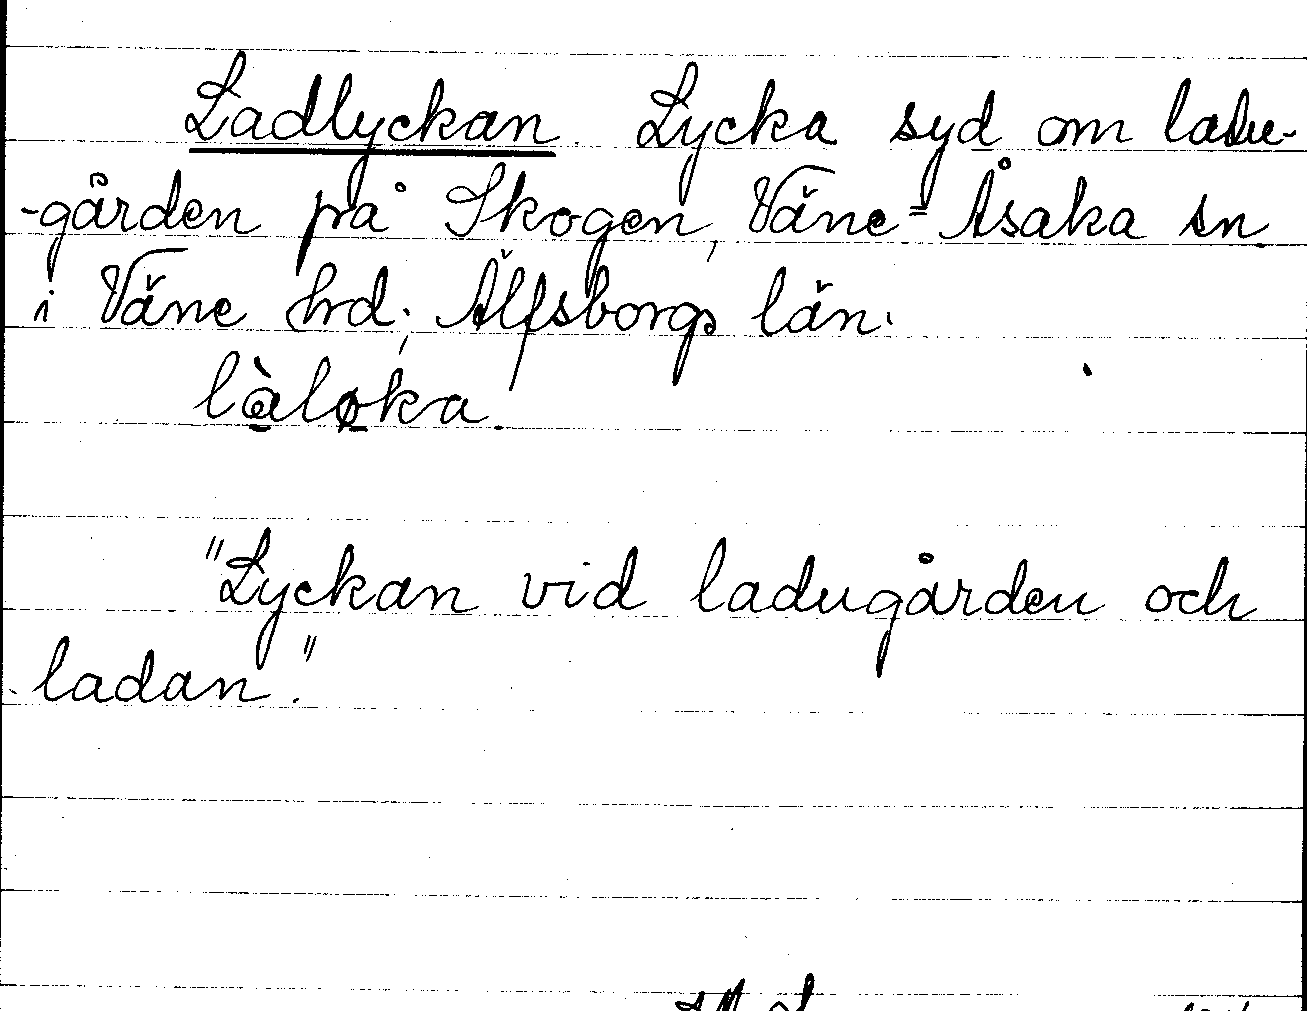 Ladlyckan. Lycka syd om ladu-
-gården på Skogen, Väne-Åsaka sn.
i Väne hrd, Älfsborgs län.
làløka.
"Lyckan vid ladugården och
ladan."